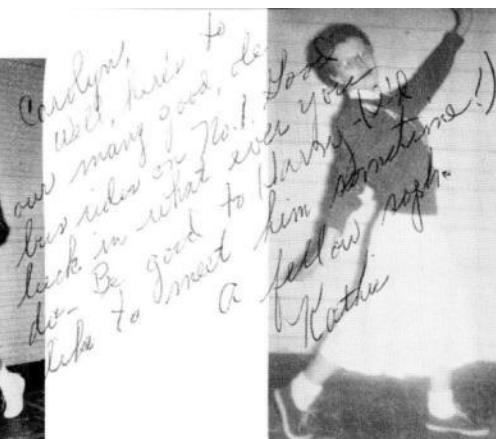 Carolyn,
Well, here's to
our many good, ole
bus rides on No. 1. Good
luck in what ever you
do- Be good to Harry-(I'd
like to meet him sometime!)
a fellow soph-
Kathie